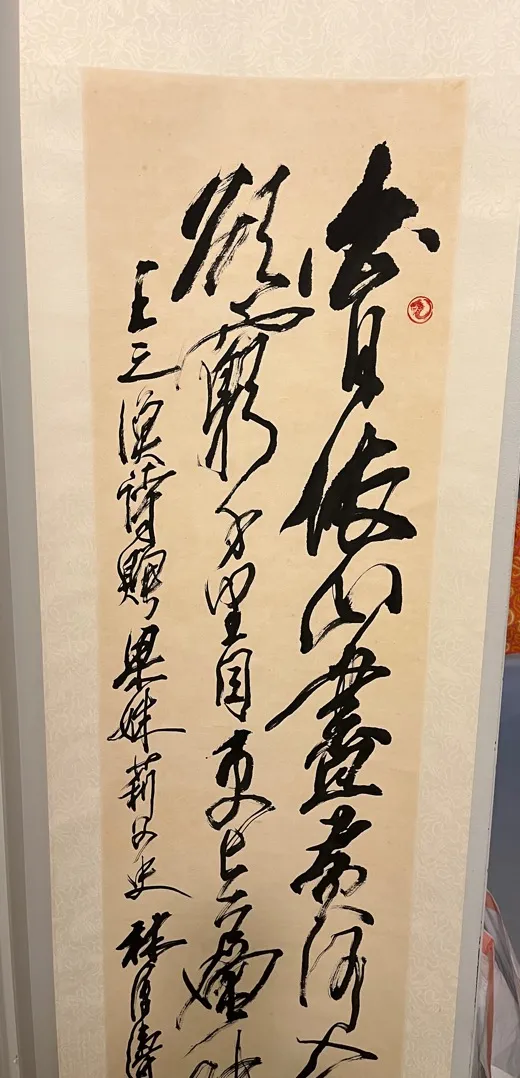 白日依山盡黃河入
欲窮千里目更上一層
王之渙詩贈梁姝莉女史 林